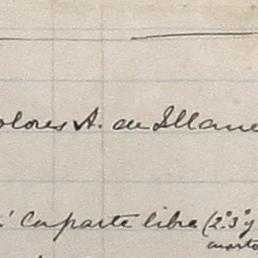 olores A. de Illane
En parte libre (2º 3º y
cuarto